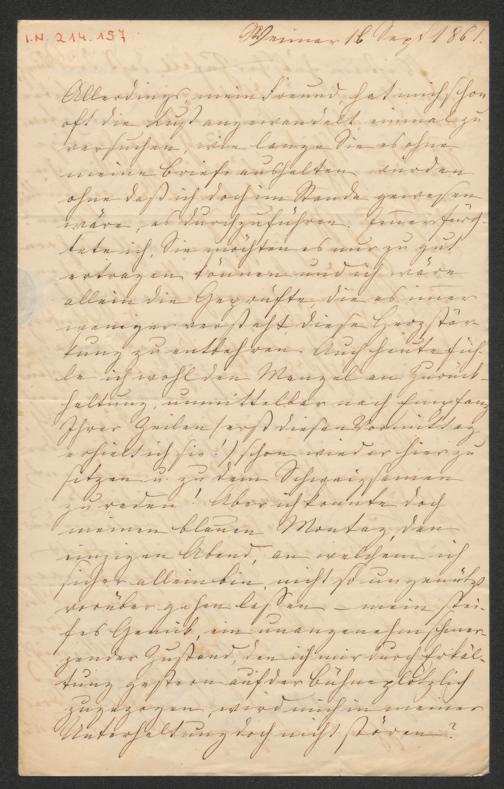 I.N. 214.157
Weimar 16 Sept 1861.
Allerdings, mein Freund, hat mich schon
oft die Lust angewandelt einmal zu
versuchen, wie lange Sie es ohne
meine Briefe aushalten würden
ohne daß ich doch im Stande gewesen
wäre, es durchzuführen. Immer fürch-
tete ich, Sie möchten es nur zu gut
ertragen können und ich wäre
allein die Geprüfte die es immer
weniger versteht diese Herzstär-
kung zu entbehren. Auch heute füh-
le ich wohl den Mangel an Zurück-
haltung, unmittelbar nach Empfang
Ihrer Zeilen (erst diesen Vormittag
erhielt ich sie!) schon wieder hier zu
sitzen u. zu dem Schweigsamen
zu reden! Aber ich konnte doch
meinen blauen Montag, den
einzigen Abend, an welchem ich
sicher allein bin, nicht so ungenützt
vorüber gehn lassen – mein stei-
fes Genick, ein unangenehm schmer-
zender Zustand, den ich mir durch Erkäl-
tung gestern auf der Bühne plötzlich
zugezogen, wird mich in meiner
Unterhaltung doch nicht stören?